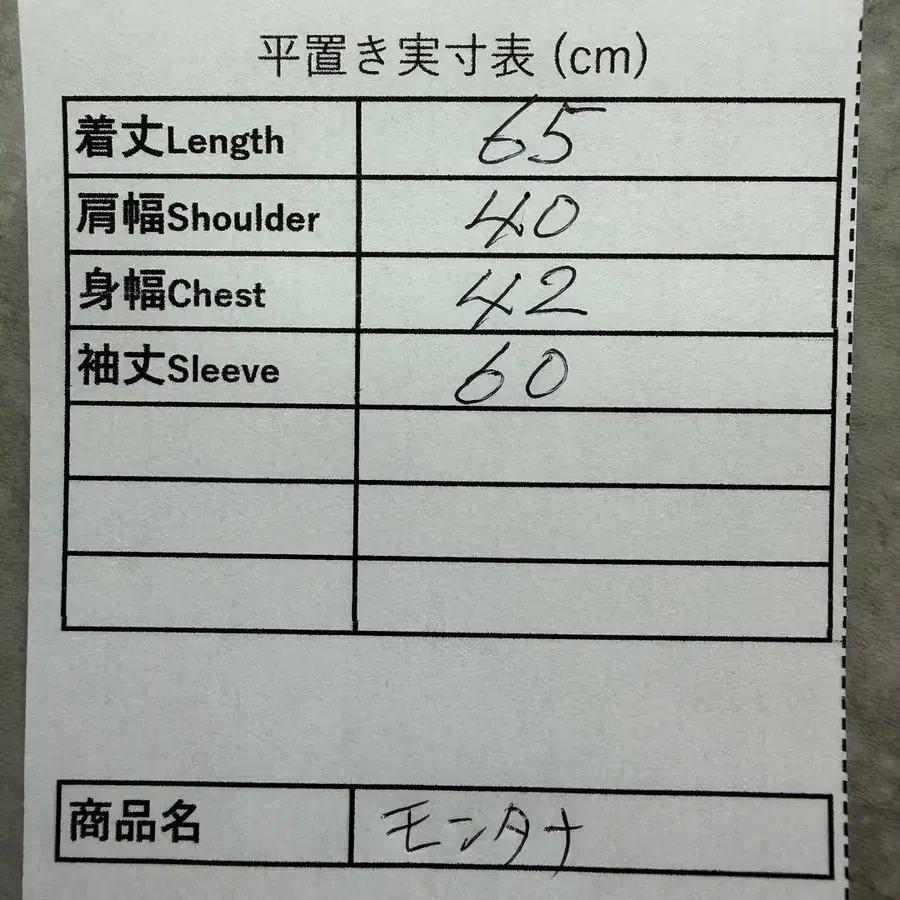 平置き実寸表 (cm)
着丈Length 65
肩幅Shoulder 40
身幅Chest 42
袖丈Sleeve 60
商品名 モンタナ